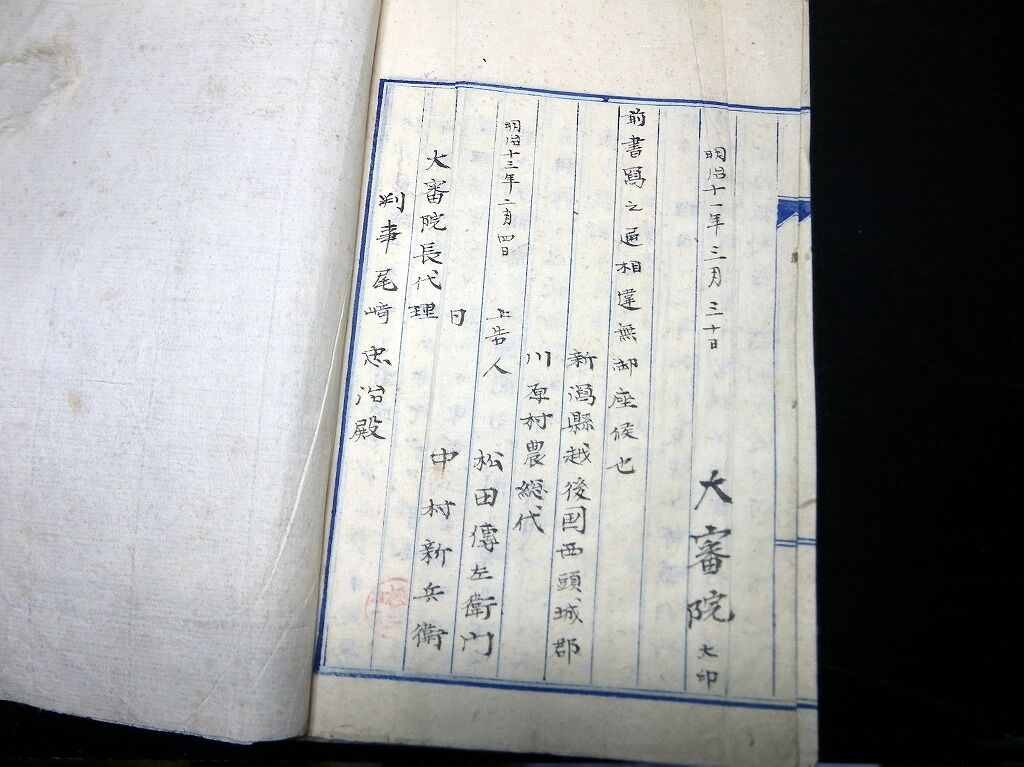 明治十一年三月三十日
大審院 大印
前書寫之通相違無御座候也
新潟縣越後国西頭城郡
川原村農総代
明治十三年二月四日
上告人
松田傳左衛門
同
中村新兵衛
大審院長代理
判事尾﨑忠治殿